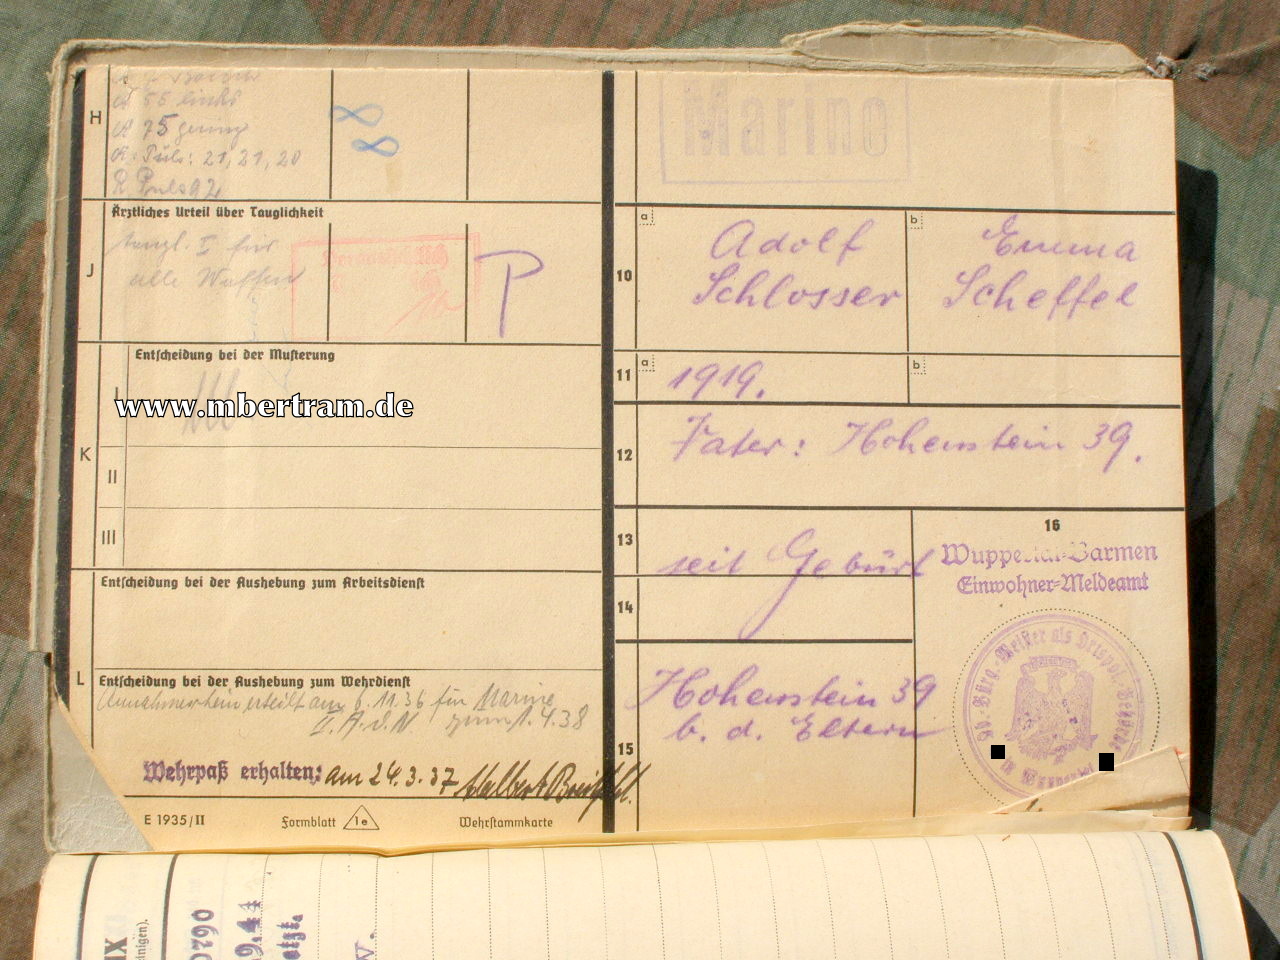 H
55 links
75 gering
R. Puls: 21, 21, 20
R. Puls 92
88
Ärztliches Urteil über Tauglichkeit
J
Taugl. I für
alle Waffen
P
Entscheidung bei der Musterung
K
I
II
III
www.mbertram.de
Entscheidung bei der Aushebung zum Arbeitsdienst
L
Entscheidung bei der Aushebung zum Wehrdienst
Annahmeschein erteilt am 6.11.36 für Marine
II. A.d.N zum 1.4.38
Wehrpaß erhalten: am 24.3.37
E 1935/II
Formblatt
1e
Wehrstammkarte
Marine
10
a
Adolf
Schlosser
b
Emma
Scheffel
11
a
1919.
b
12
Vater: Hohenstein 39.
13
seit Geburt
14
15
Hohenstein 39
b. d. Eltern
16
Wuppertal-Barmen
Einwohner-Meldeamt
Ob.-Bürg.-Meister als Ortspol.-Behörde
in Wuppertal
IX
0790
9.44